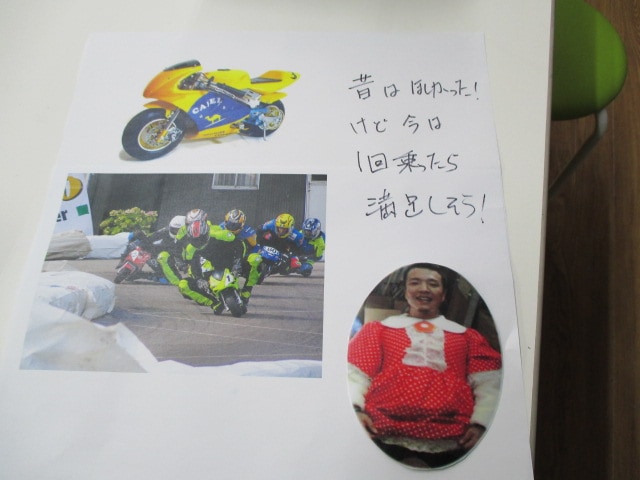 昔はほしかった!
けど今は
1回乗ったら
満足しそう!
CAMEL